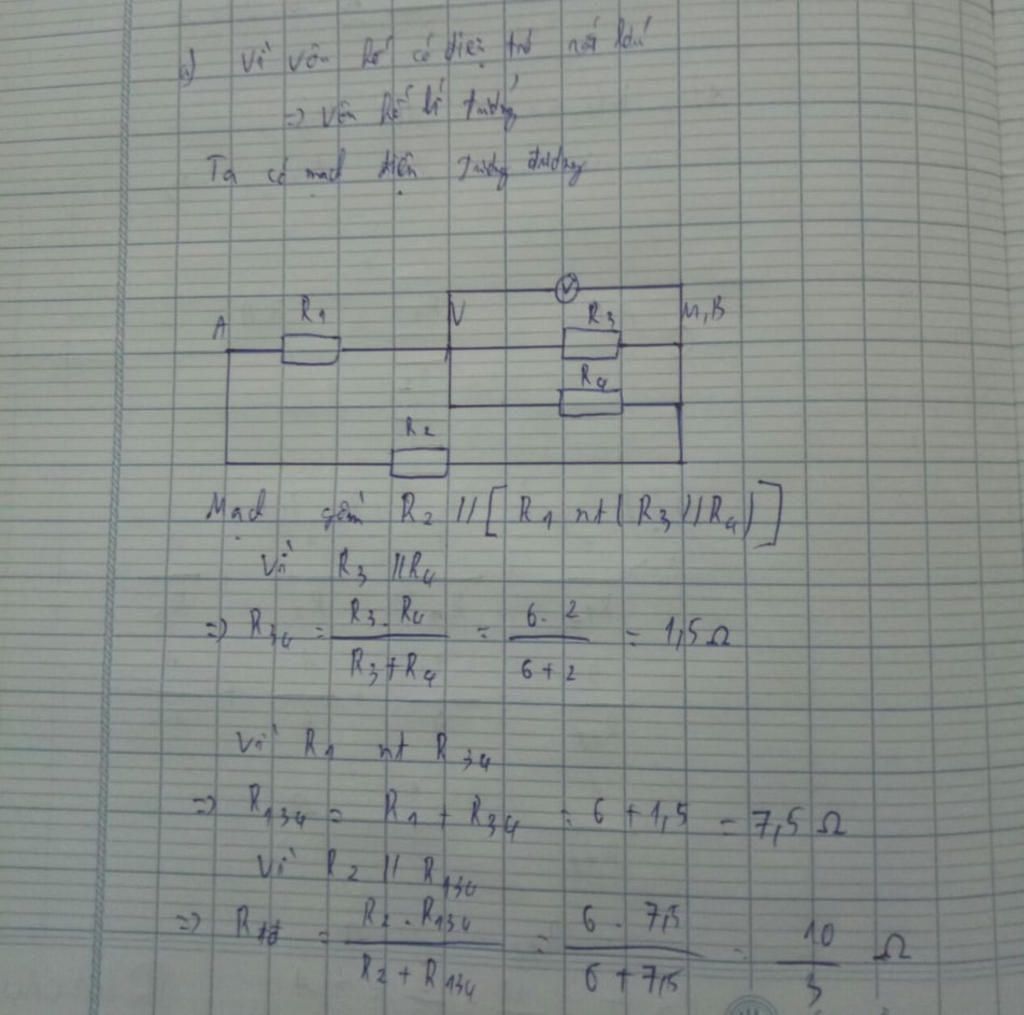 a) Vì vôn kế có điện trở rất lớn
=> Vôn kế lí tưởng
Ta có mạch điện tương đương
V
A R1 N R3 M,B
R4
R2
Mạch gồm R2 // [ R1 nt ( R3 // R4 ) ]
Vì R3 // R4
=> R34 = R3 . R4 / R3 + R4 = 6 . 2 / 6 + 2 = 1,5 Ω
Vì R1 nt R34
=> R134 = R1 + R34 = 6 + 1,5 = 7,5 Ω
Vì R2 // R134
=> Rtđ = R2 . R134 / R2 + R134 = 6 . 7,5 / 6 + 7,5 = 10 / 3 Ω